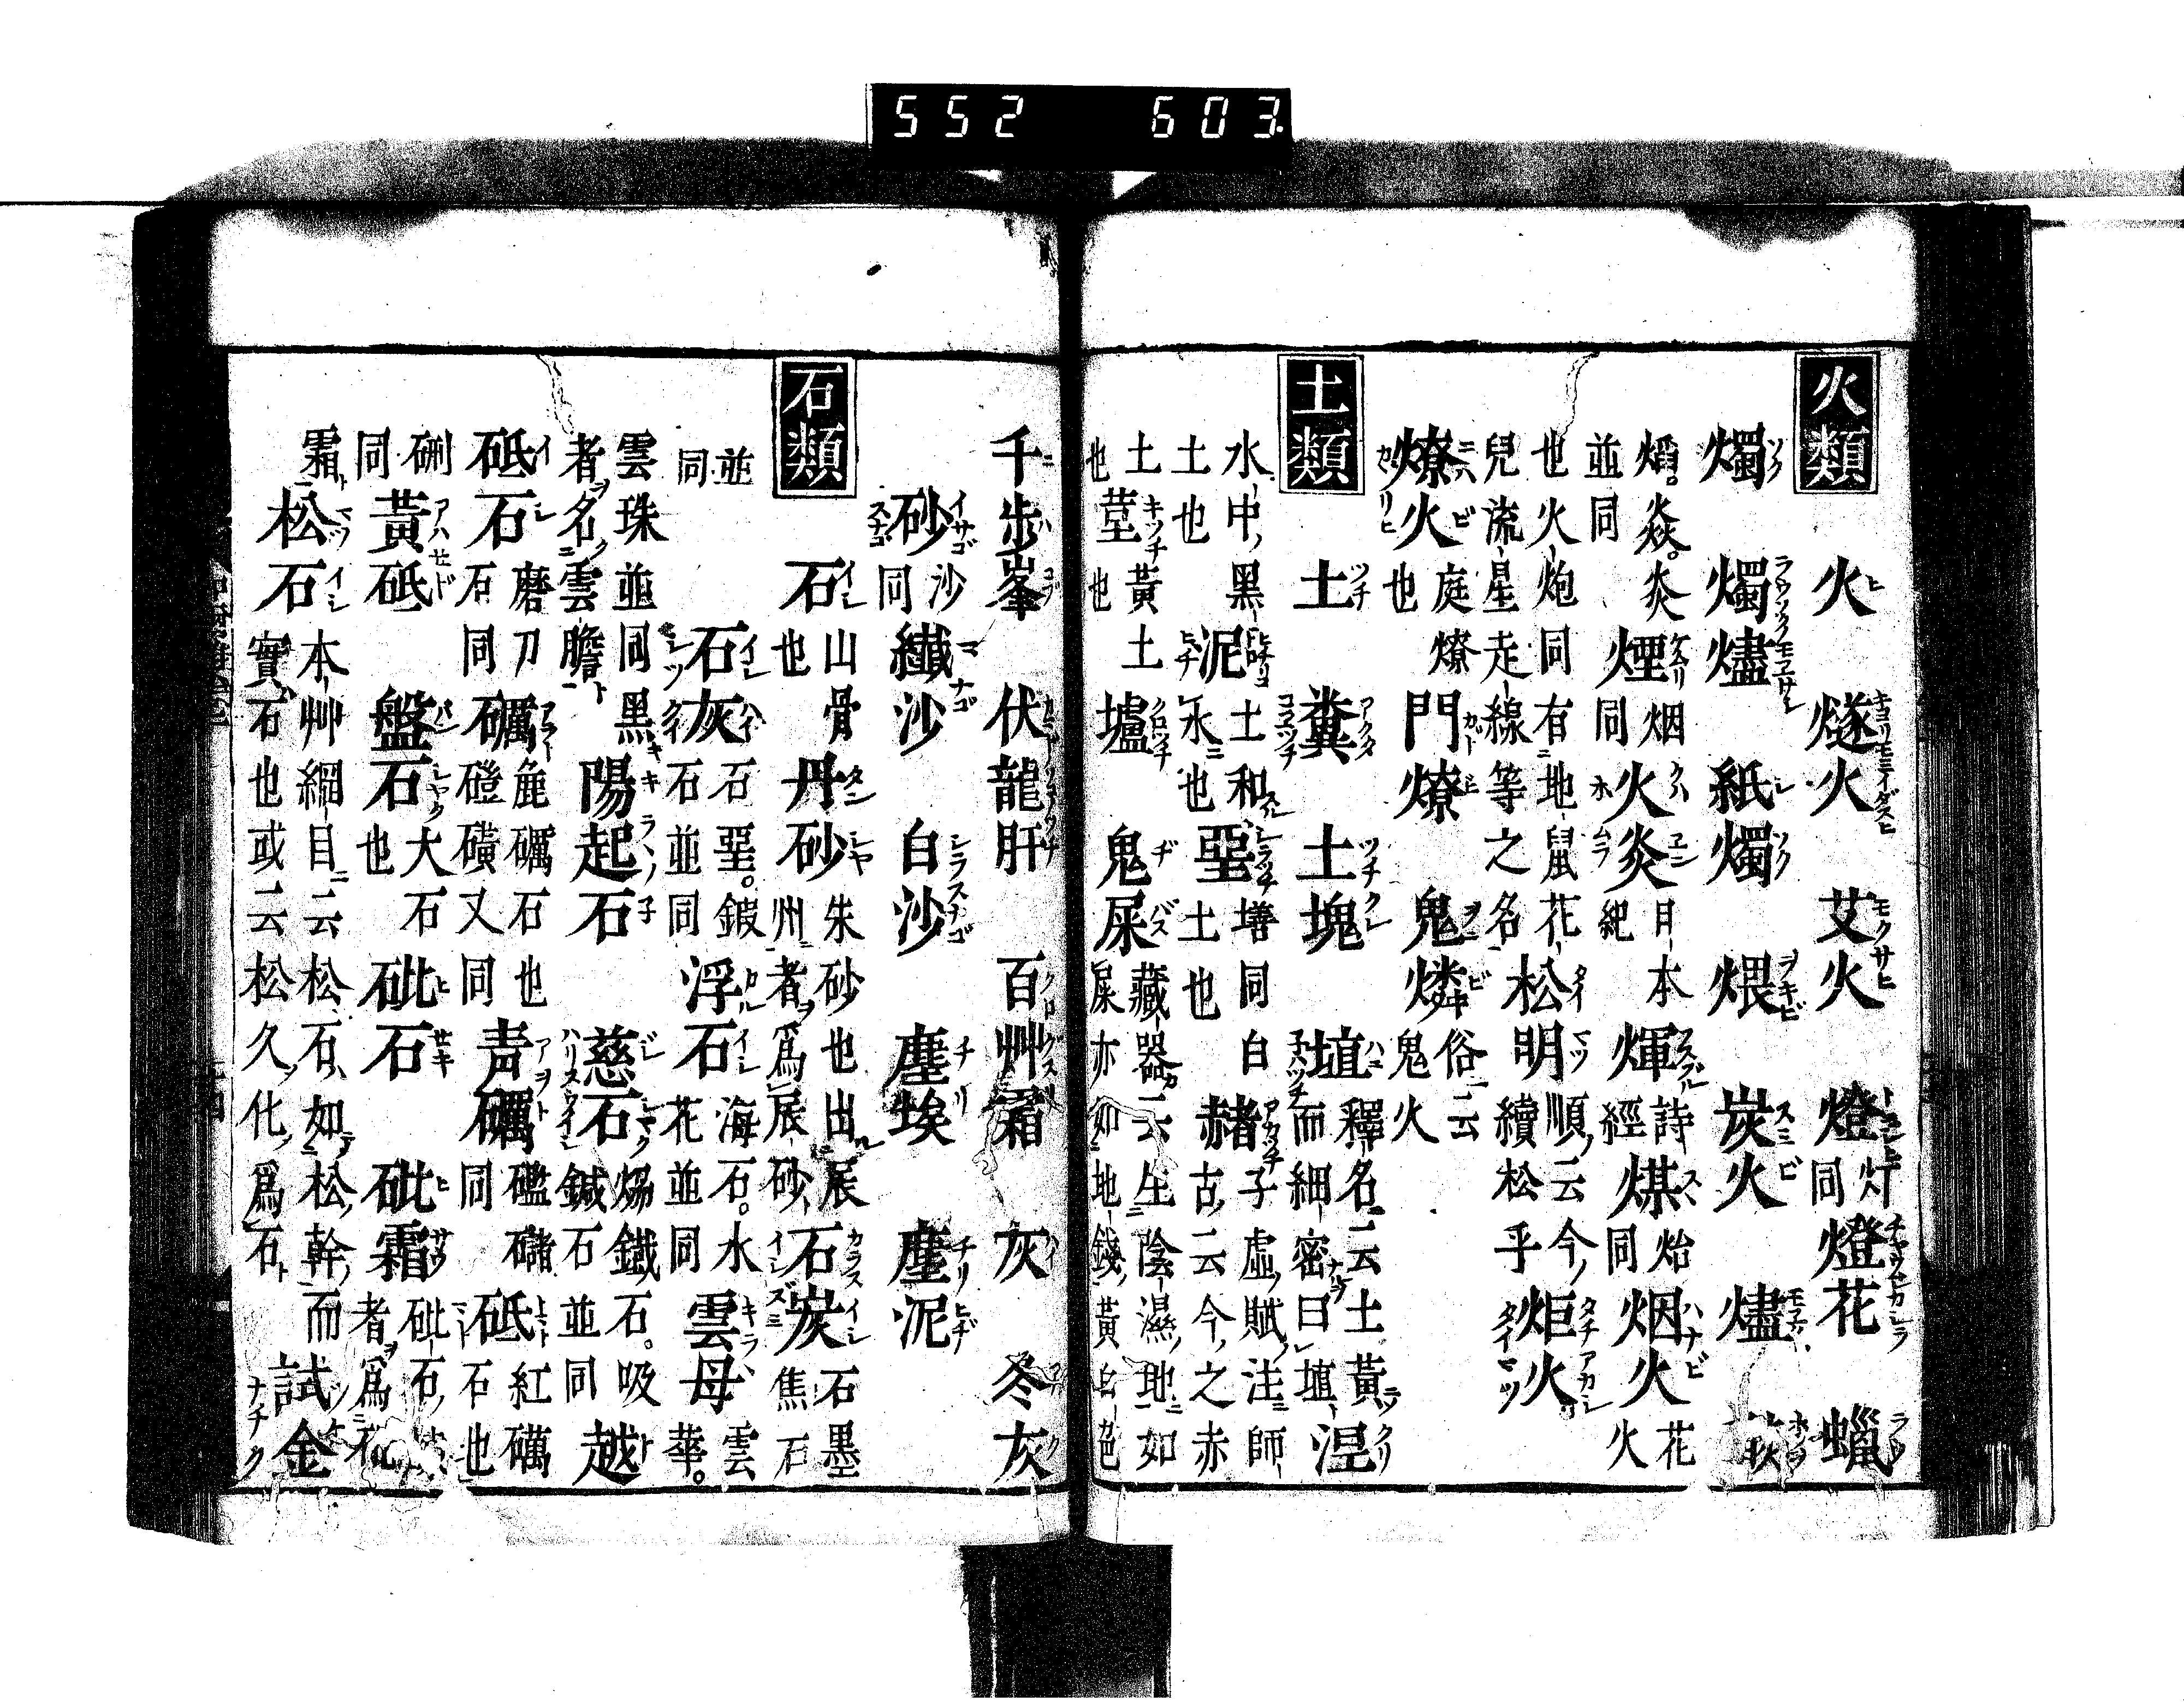 552 603.
火類
火 燧火 艾火 燈 灯同 燈花 蠟
燭 燭燼 紙燭 煨 炭火 燼
熖。焱。炎 並同 煙 烟同 火炎 輝 詩經 煤 炲同 烟火 花火
也火炮同有地鼠花 兒流星走線等之名 松明 順云今續松乎 炬火
燎火 庭燎也 門燎 鬼燐 俗云鬼火
土類
土 糞 土塊 埴 釋名云土黃而細密曰埴 涅
水中黑土也 泥 土和水也 堊 墡同白土也 赭 子虛賦注師古云今之赤
土也 墐 黃土也 壚 鬼屎 藏器云生陰濕地如屎亦如地錢黃白色
千歩峯 伏龍肝 百艸霜 灰 冬灰
砂 沙同 纎沙 白沙 塵埃 塵泥
石類
石 山骨也 丹砂 朱砂也出辰州者爲辰砂 石炭 石墨焦石
並同 石灰 石堊。鍛石並同 浮石 海石。水花並同 雲母 雲華。
雲珠並同黑者名雲膽 陽起石 慈石 煬鐵石。吸鍼石並同 越
砥石 磨刀石同 礪 麁礪石也磑磺又同 靑礪 礛䃴同 砥 紅礪石也
硎同 黃砥 盤石 大石也 砒石 砒霜
霜 松石 本艸綱目云松石如松幹而實石也或云松久化爲石 試金